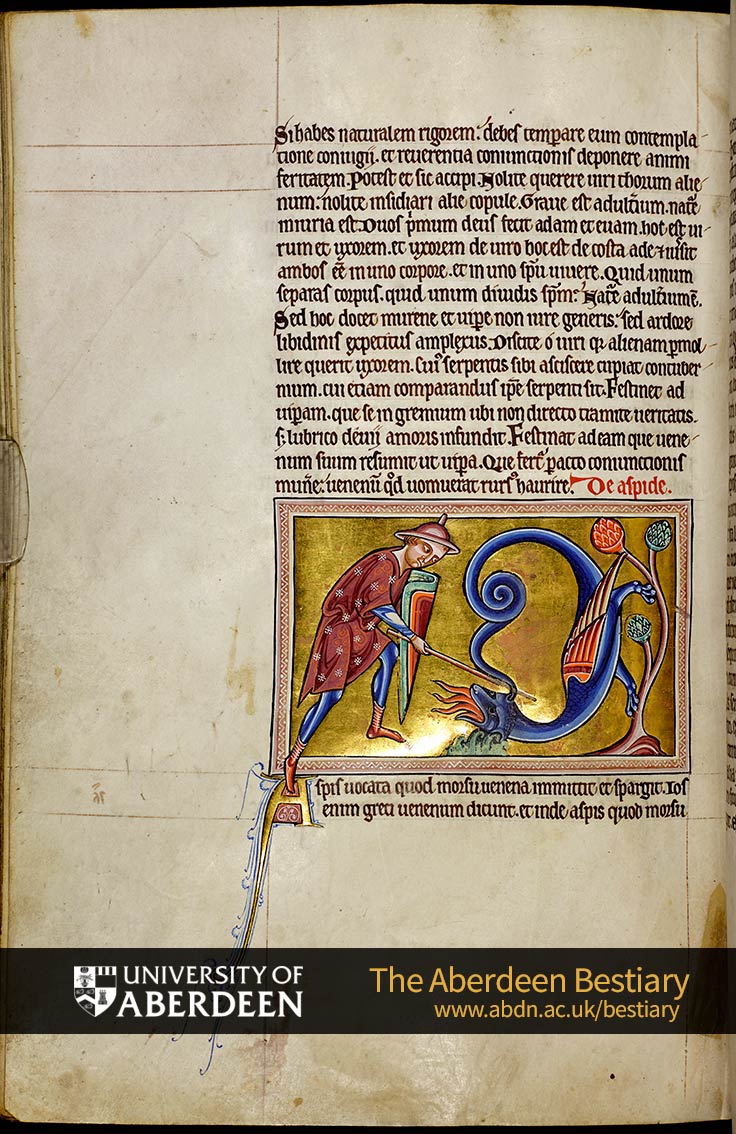 Si habes naturalem rigorem. debes temperare eum contempla
tione coniugii. et reuerentia coniunctionis deponere animi
feritatem. Potest et sic accipi. Nolite querere uiri thorum alie
num. nolite insidiari alie copule. Graue est adulterium. nature
iniuria est. Duos primum deus fecit adam et euam. hoc est ui
rum et uxorem. et uxorem de uiro hoc est de costa ade et iussit
ambos esse in uno corpore. et in uno spiritu uiuere. Quid unum
separas corpus. quid unum diuidis spiritum. Nature adulterium est.
Sed hoc docet murene et uipere non iure generis. sed ardore
libidinis expetitus amplexus. Discite o uiri qui alienam permol
lire querit uxorem. Cuius serpentis sibi asciscere cupiat contuber
nium. cui etiam comparandus ipse serpenti sit. Festinet ad
uiperam. que se in gremium ubi non directo tramite ueritatis.
sed lubrico deuii amoris infundit. Festinat ad eam que uene
num suum resumit ut uipera. Que fertur peracto coniunctionis
munere. uenenum quod uomuerat rursus haurire. De aspide.
Aspis uocata quod morsu uenena immittit et spargit. Ios
enim greci uenenum dicunt. et inde aspis quod morsu
UNIVERSITY OF
ABERDEEN
The Aberdeen Bestiary
www.abdn.ac.uk/bestiary